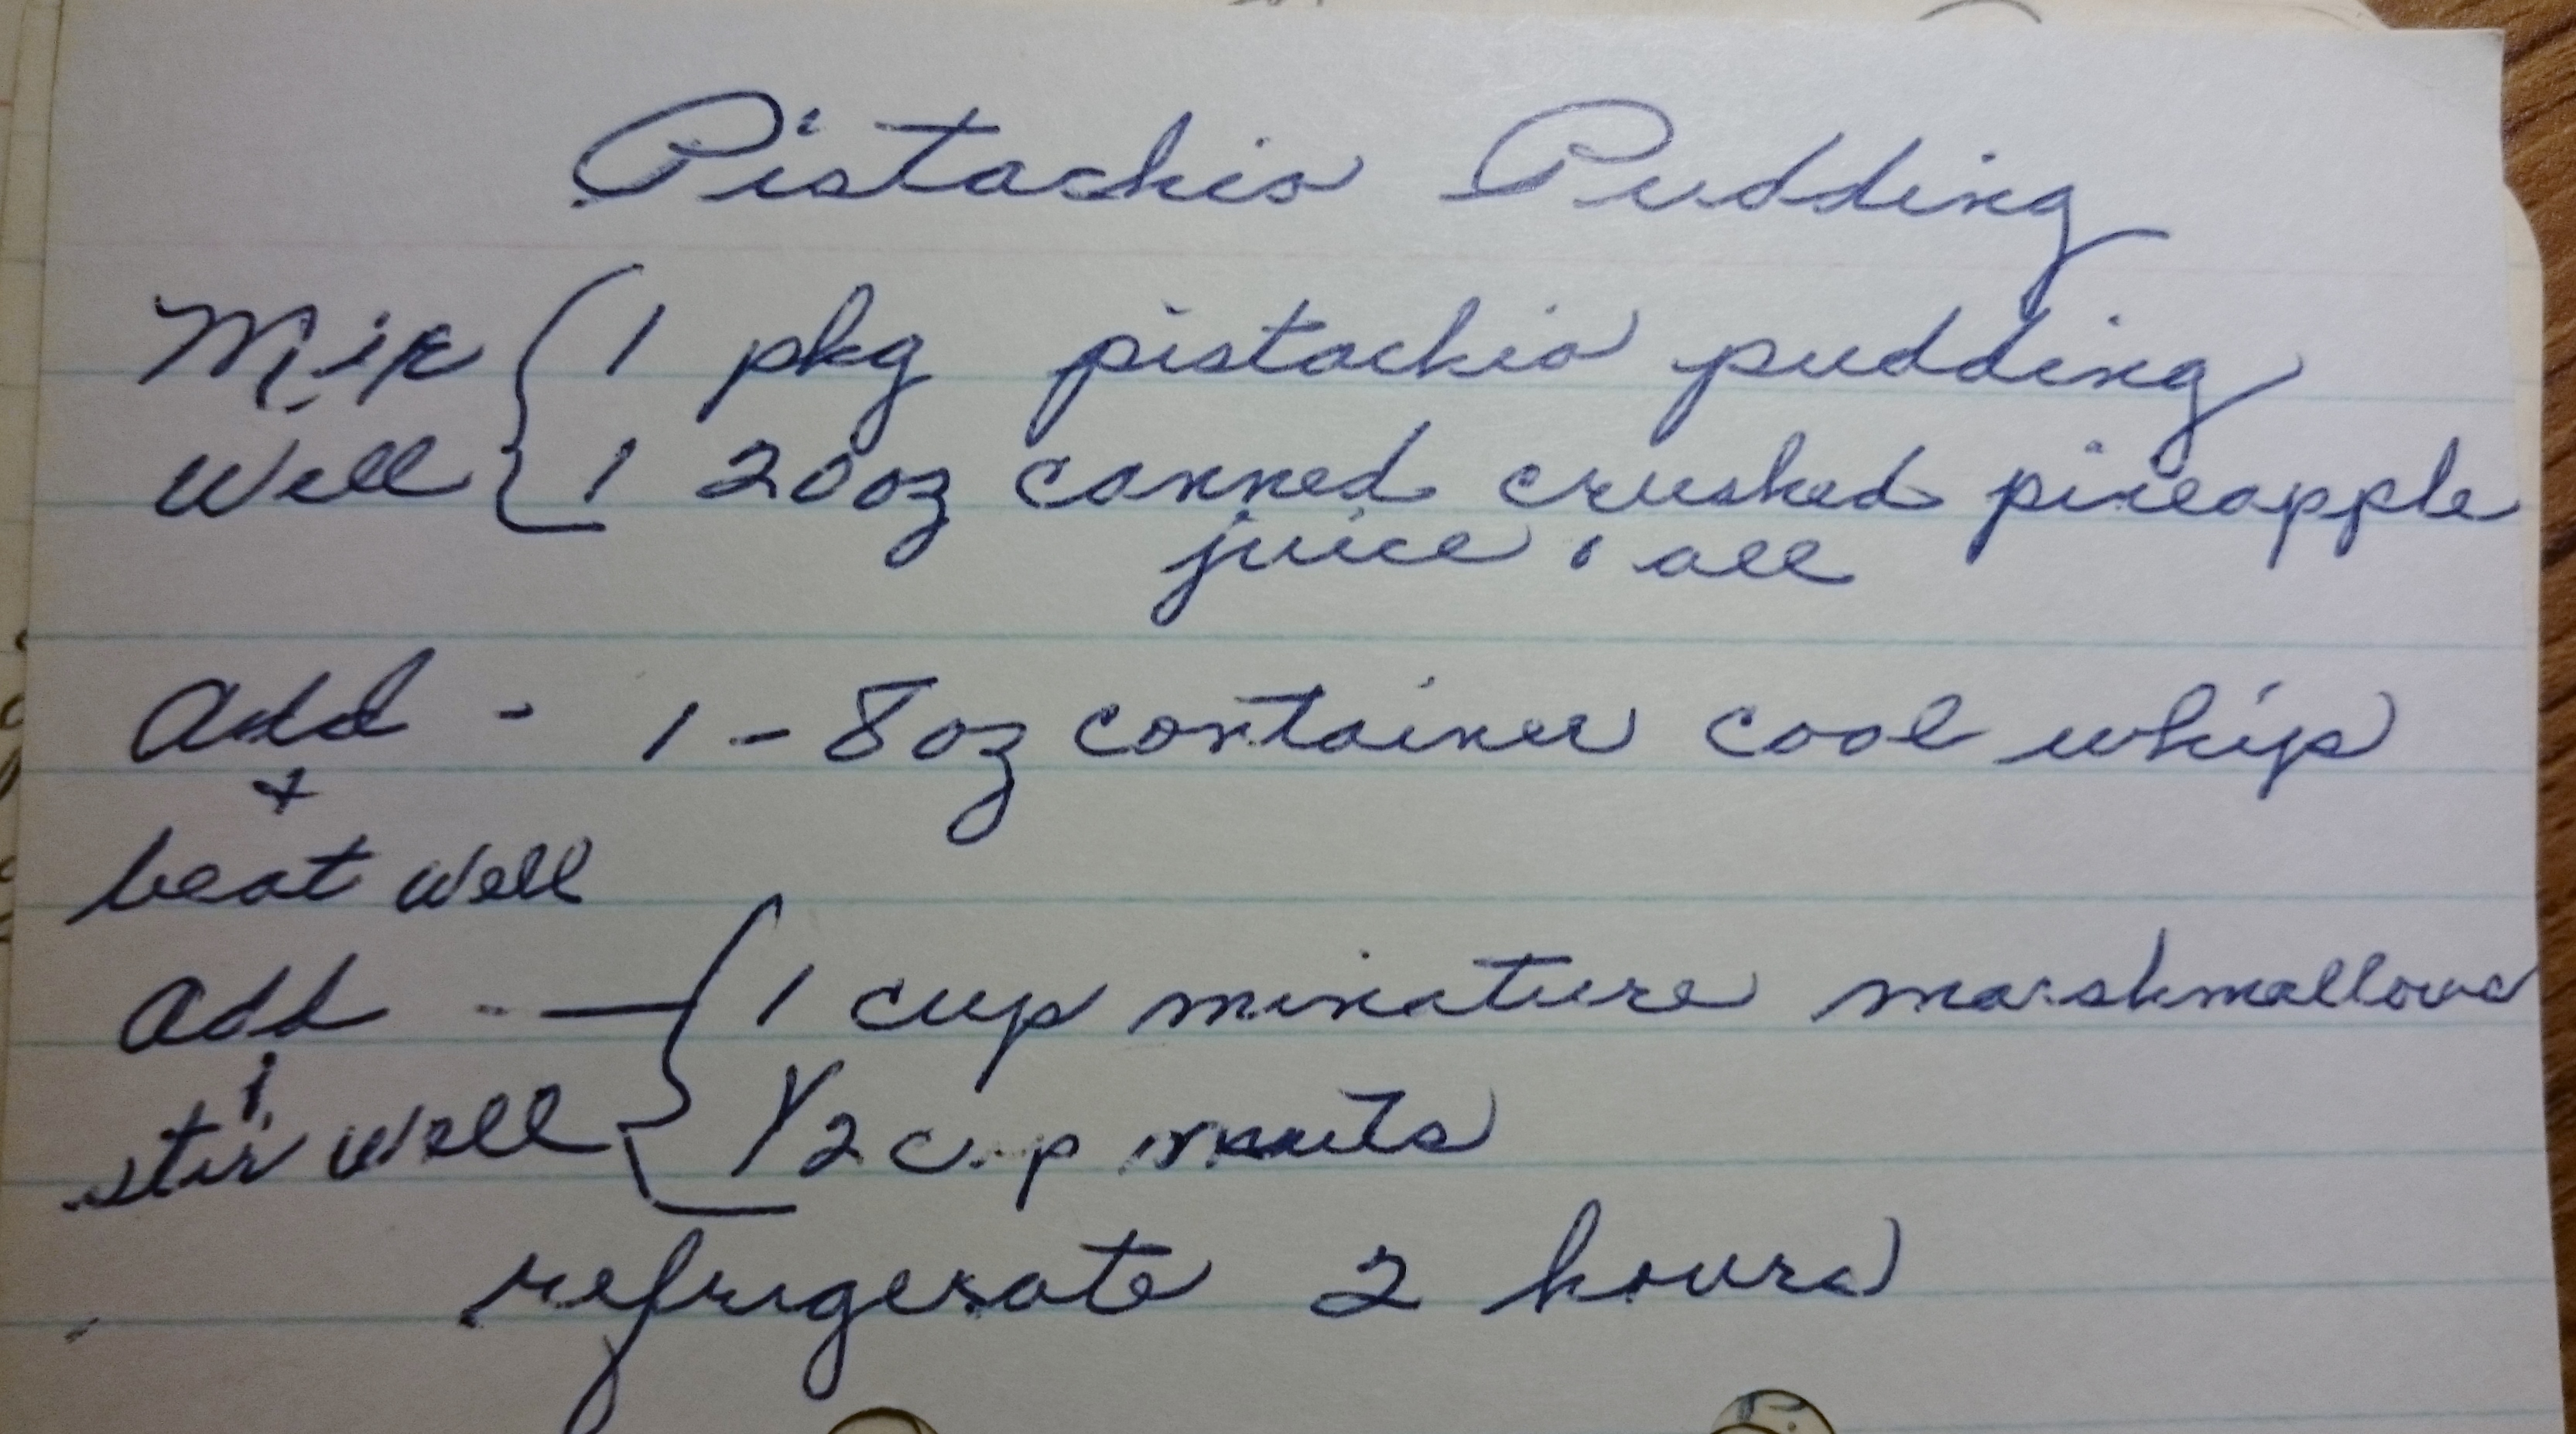 Pistachio Pudding
Mix { 1 pkg pistachio pudding
Well { 1 20oz canned crushed pineapple
juice & all
Add - 1 - 8oz container cool whip
+
beat well
Add - { 1 cup minature marshmallows
&
stir well { 1/2 cup nuts
refrigerate 2 hours